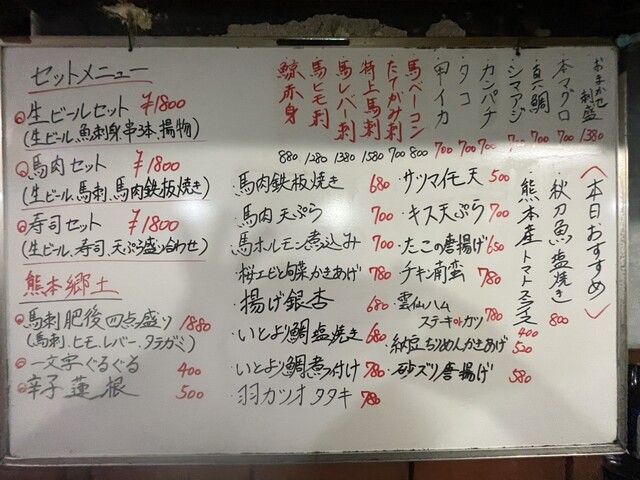 セットメニュー
生ビールセット ¥1800
(生ビール、魚刺身、串3本、揚物)
馬肉セット ¥1800
(生ビール、馬刺、馬肉鉄板焼き)
寿司セット ¥1800
(生ビール、寿司、天ぷら盛り合わせ)
熊本郷土
馬刺肥後四点盛り 1880
(馬刺、ヒモ、レバー、タテガミ)
一文字ぐるぐる 400
辛子蓮根 500
<本日おすすめ>
おまかせ刺盛 1380
本マグロ
真鯛 700
シマアジ 700
カンパチ 700
タコ 700
甲イカ 700
馬ベーコン 800
たてがみ刺 700
特上馬刺 1580
馬レバー刺 1380
馬ヒモ刺 1280
鯨赤身 880
秋刀魚塩焼き 800
熊本産トマトスライス 400
・馬肉鉄板焼き 680
・馬肉天ぷら 700
・馬ホルモン煮込み 700
・桜エビと旬菜かきあげ 780
・揚げ銀杏 680
・いとより鯛塩焼き 680
・いとより鯛煮つけ 780
・羽カツオタタキ 780
・サツマイモ天 500
・キス天ぷら 700
・たこの唐揚げ 650
・チキン南蛮 780
・雲仙ハム
ステーキorカツ 780
・納豆ちりめんかきあげ 520
・砂ズリ唐揚げ 580